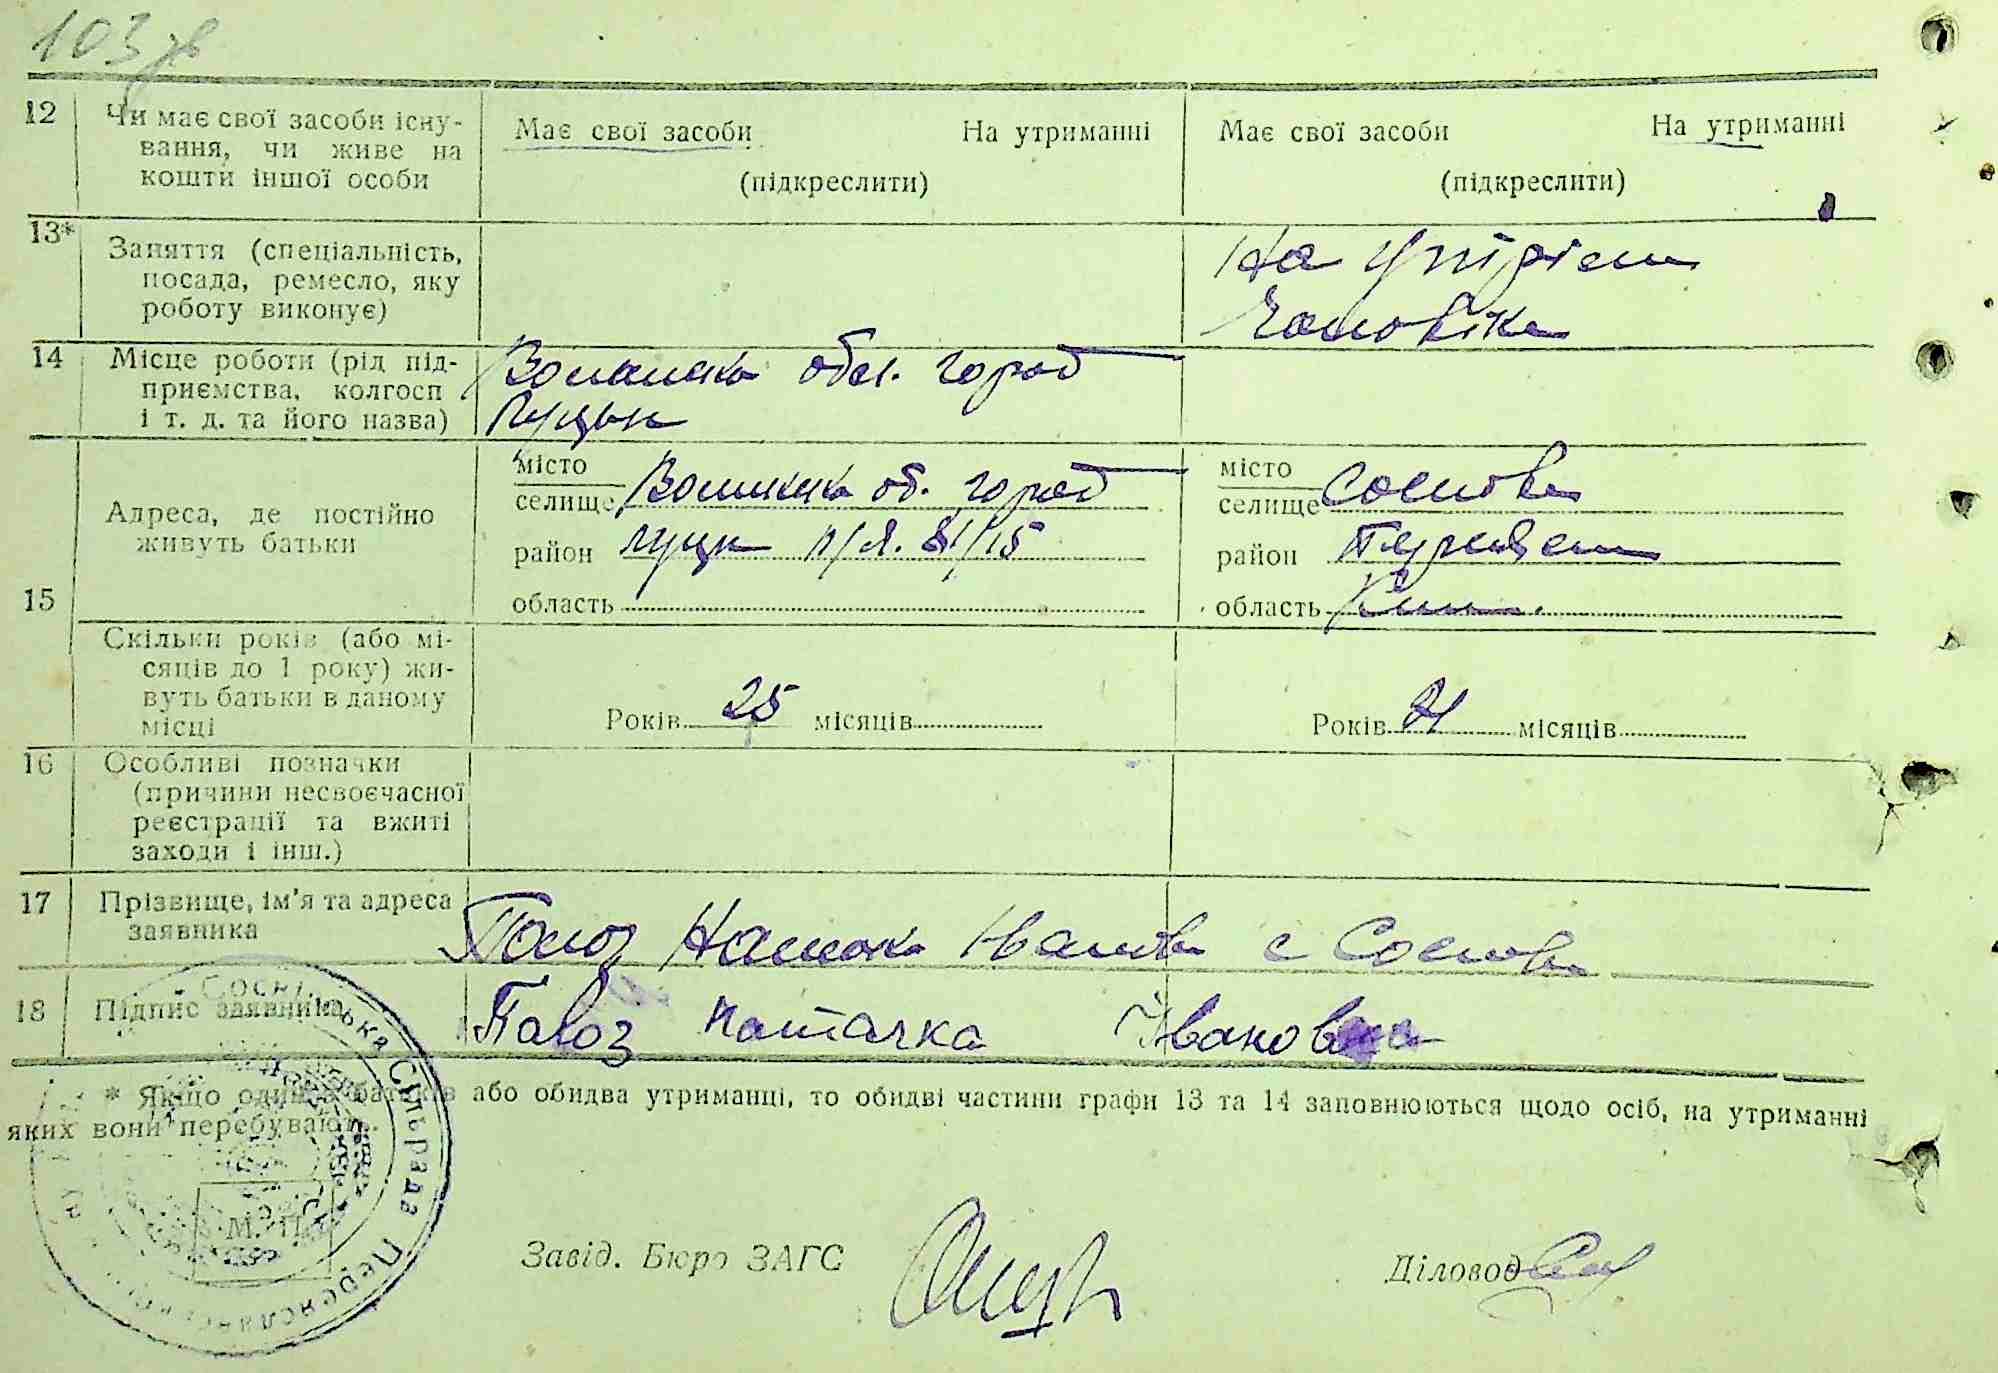 103 зв
12 Чи має свої засоби існу-
вання, чи живе на
кошти іншої особи
Має свої засоби На утриманні
(підкреслити)
Має свої засоби На утриманні
(підкреслити)
13* Заняття (спеціальність,
посада, ремесло, яку
роботу виконує)
На
чоловіка
14 Місце роботи (рід під-
приємства, колгосп
і т. д. та його назва)
Волинська обл. город
Луцьк
15 Адреса, де постійно
живуть батьки
місто
селище Волинська об. город
район Луцк п/я. 81/15
область
місто
селище Соснова
район
область
Скільки років (або мі-
сяців до 1 року) жи-
вуть батьки в даному
місці
Років 25 місяців
Років 21 місяців
16 Особливі позначки
(причини несвоєчасної
реєстрації та вжиті
заходи і інш.)
17 Прізвище, ім'я та адреса
заявника
Полоз Наталка Іванов с Соснова
18 Підпис заявника
Полоз Наталка Івановна
* Якщо один з батьків або обидва утриманці, то обидві частини графи 13 та 14 заповнюються щодо осіб, на утриманні
яких вони перебувают.
М. П.
Завід. Бюро ЗАГС
Діловод